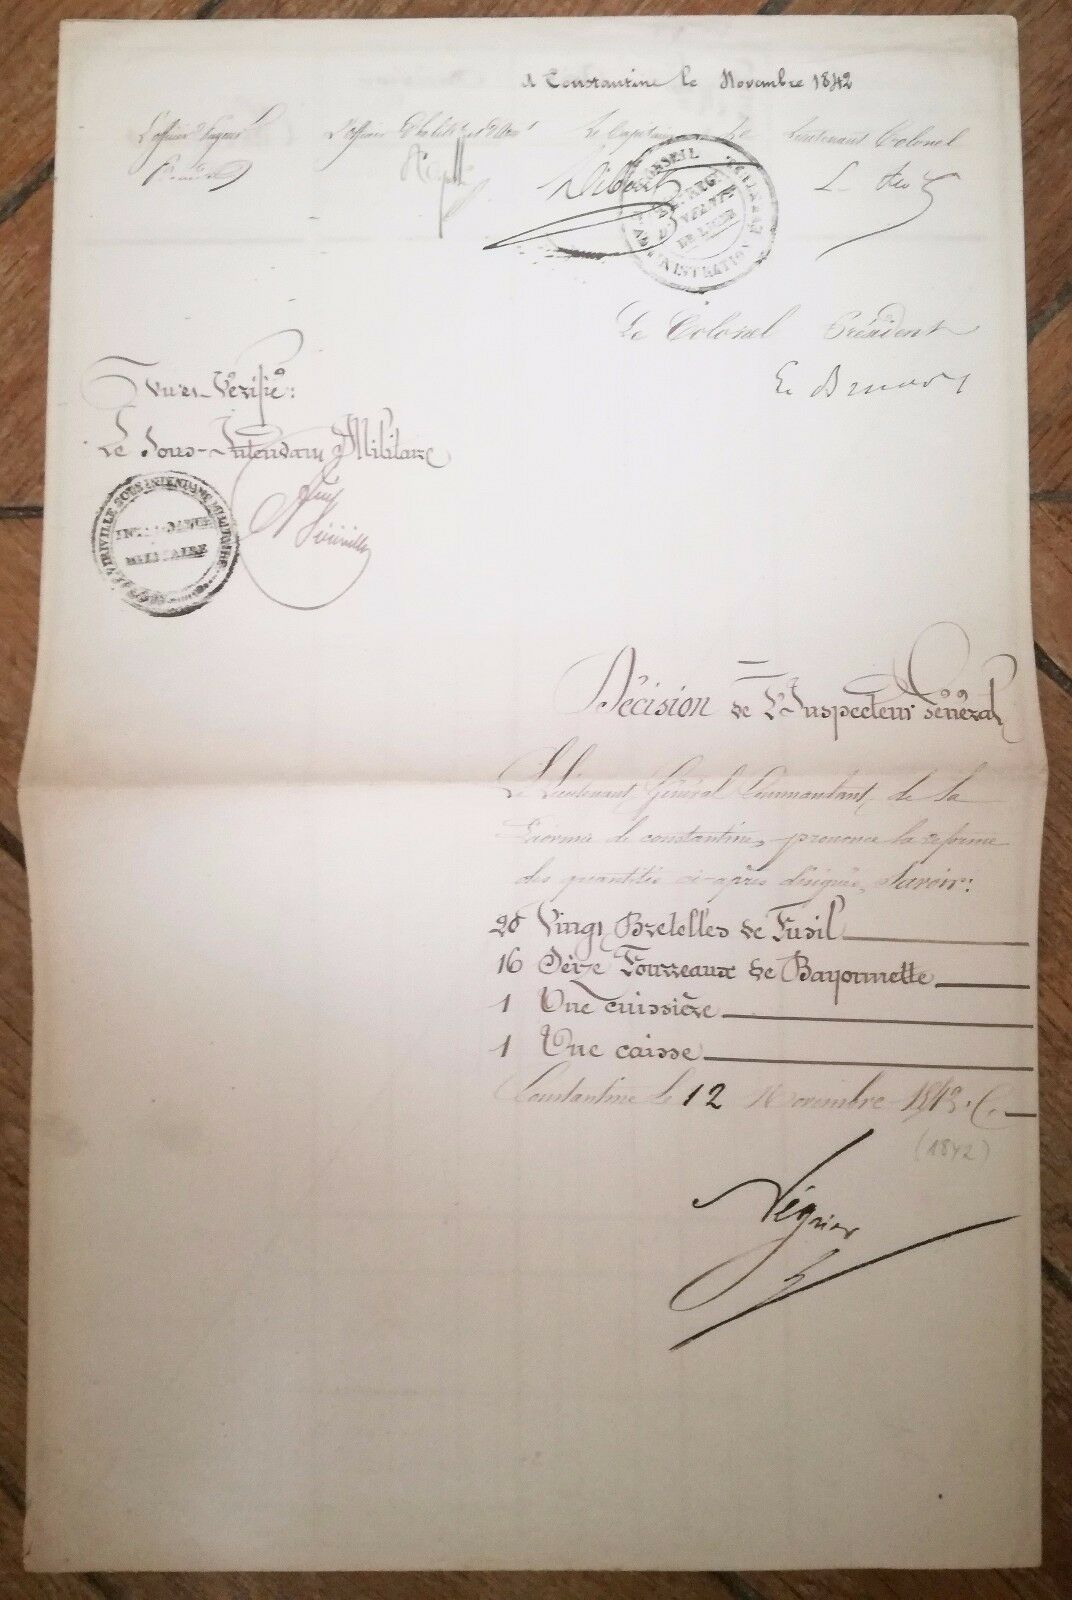 A Constantine le Novembre 1842
L'officier L'officier d'habilt et d'Armt Le Capitaine Le Lieutenant Colonel
CONSEIL
D'INFANTIE
DE LIGNE
ADMINISTRATION
Le Colonel Président
Vu et Vérifié:
Le Sous-Intendant Militaire
VIRIVILLE SOUS INTENDANT MILITAIRE
INTENDANCE
MILITAIRE
Décision de L'Inspecteur Général
Le Lieutenant Général Commantant, de la
Province de constantine, prononce la reforme
des quantités ci-après désignés, Savoir:
20 Vingt Bretelles de Fusil
16 Seize Fourreaux de Bayonnette
1 Une cuissière
1 Une caisse
Constantine le 12 Novembre 1842.
(1842)
Négrier